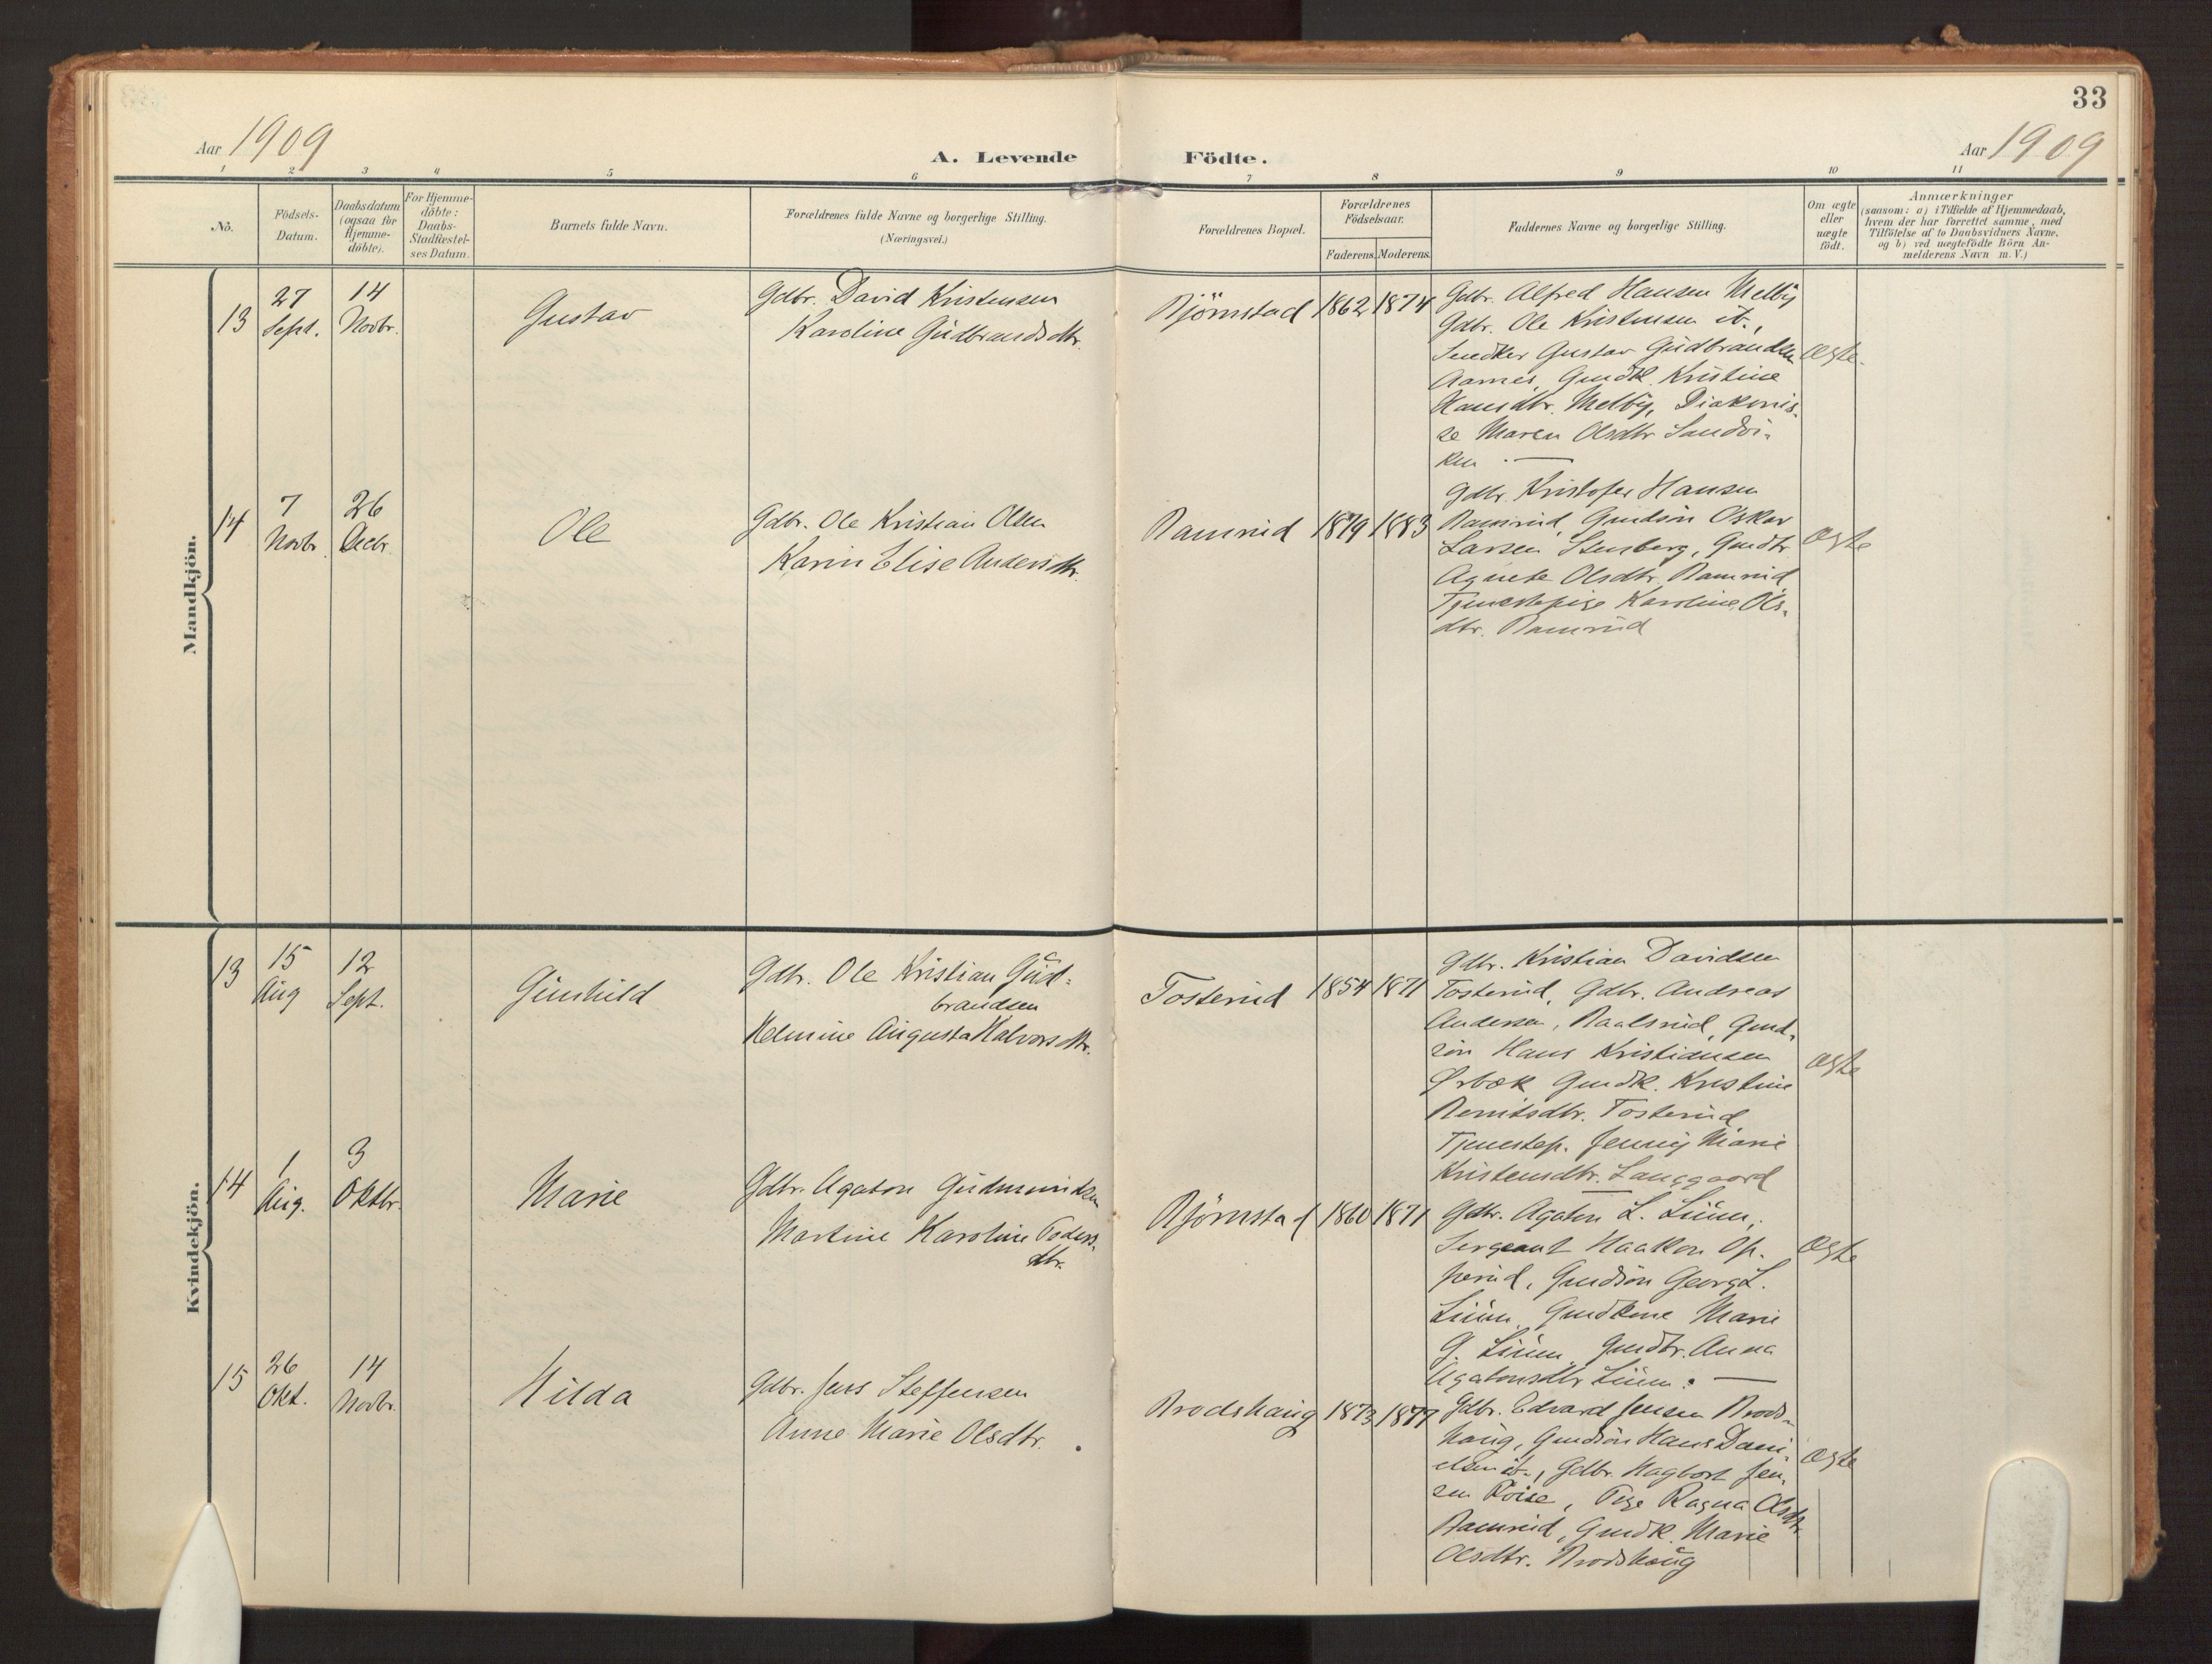 33
Aar 1909
A. Levende Födte.
Aar 1909
1 2 3 4 5 6 7 8 9 10 11
No.
Födsels-
Datum.
Daabsdatum
(ogsaa for
Hjemme-
döbte).
For Hjemme-
döbte:
Daabs-
Stadfæstel-
ses Datum.
Barnets fulde Navn.
Forældrenes fulde Navne og borgerlige Stilling.
(Næringsvei.)
Forældrenes Bopæl.
Forældrenes
Födselsaar.
Faderens. Moderens.
Faddernes Navne og borgerlige Stilling.
Om ægte
eller
uægte
födt.
Anmærkninger
(saasom: a) i Tilfælde af Hjemmedaab,
hvem der har forrettet samme, med
Tilföielse af to Daabsvidners Navne.
og b) ved uægtefödte Börn An-
melderens Navn m.V.)
Mandkjön.
13
27
Sept.
14
Novbr.
Gustav
Gdbr. David Kristensen
Karoline Gudbrandsdtr.
Björnstad
1862
1874
Gdbr. Alfred Hansen Melby
Gdbr. Ole Kristensen ib.,
Snedker Gustav Gudbrandsen
Aarnes, Gmdk. Kristine
Hansdtr. Melby, Diakonis-
se Maren Olsdtr Sandvi-
ken —
ægte.
14
7
Novbr.
26
Decbr.
Ole
Gdbr. Ole Kristian Olsen
Karin Elise Andersdtr.
Ramrud
1879
1883
Gdbr. Kristofer Hansen
Ramrud, Gmdsön Oskar
Larsen Stensberg, Gmdtr.
Agnete Olsdtr. Ramrud
Tjenestepige Karoline Ols-
dtr. Ramrud
ægte
Kvindekjön.
13
15
Aug
12
Sept.
Gunhild
Gdbr. Ole Kristian Gud-
brandsen
Helmine Augusta Halvorsdtr.
Tosterud
1854
1871
Gdbr. Kristian Davidsen
Tosterud, Gdbr. Andreas
Andersen, Raalsrud, Gmd-
sön Hans Kristiansen
Ørbæk Gmdk. Kristine
Berntsdtr. Tosterud
Tjenestep. Jenny Marie
Kristensdtr. Langgaard
ægte
14
1
Aug.
3
Oktbr.
Marie
Gdbr. Agaton Gudmundsen
Martine Karoline Peders-
dtr.
Björnstad
1860
1871
Gdbr. Agaton L. Lium,
Sergeant Haakon Op-
perud, Gmdsön Georg L.
Lium, Gmdkone Marie
G. Lium, Gmdtr. Anna
Agatonsdtr Lium. —
ægte
15
26
Okt.
14
Novbr.
Hilda
Gdbr. Jens Steffensen
Anne Marie Olsdtr.
Brodshaug
1873
1877
Gdbr. Edvard Jensen Brods-
haug, Gmdsön Hans Dani-
elsen ib., Gdbr. Hagbart Jen-
sen Röise, Pige Ragna Olsdtr.
Ramrud, Gmdk. Marie
Olsdtr. Brodshaug
ægte